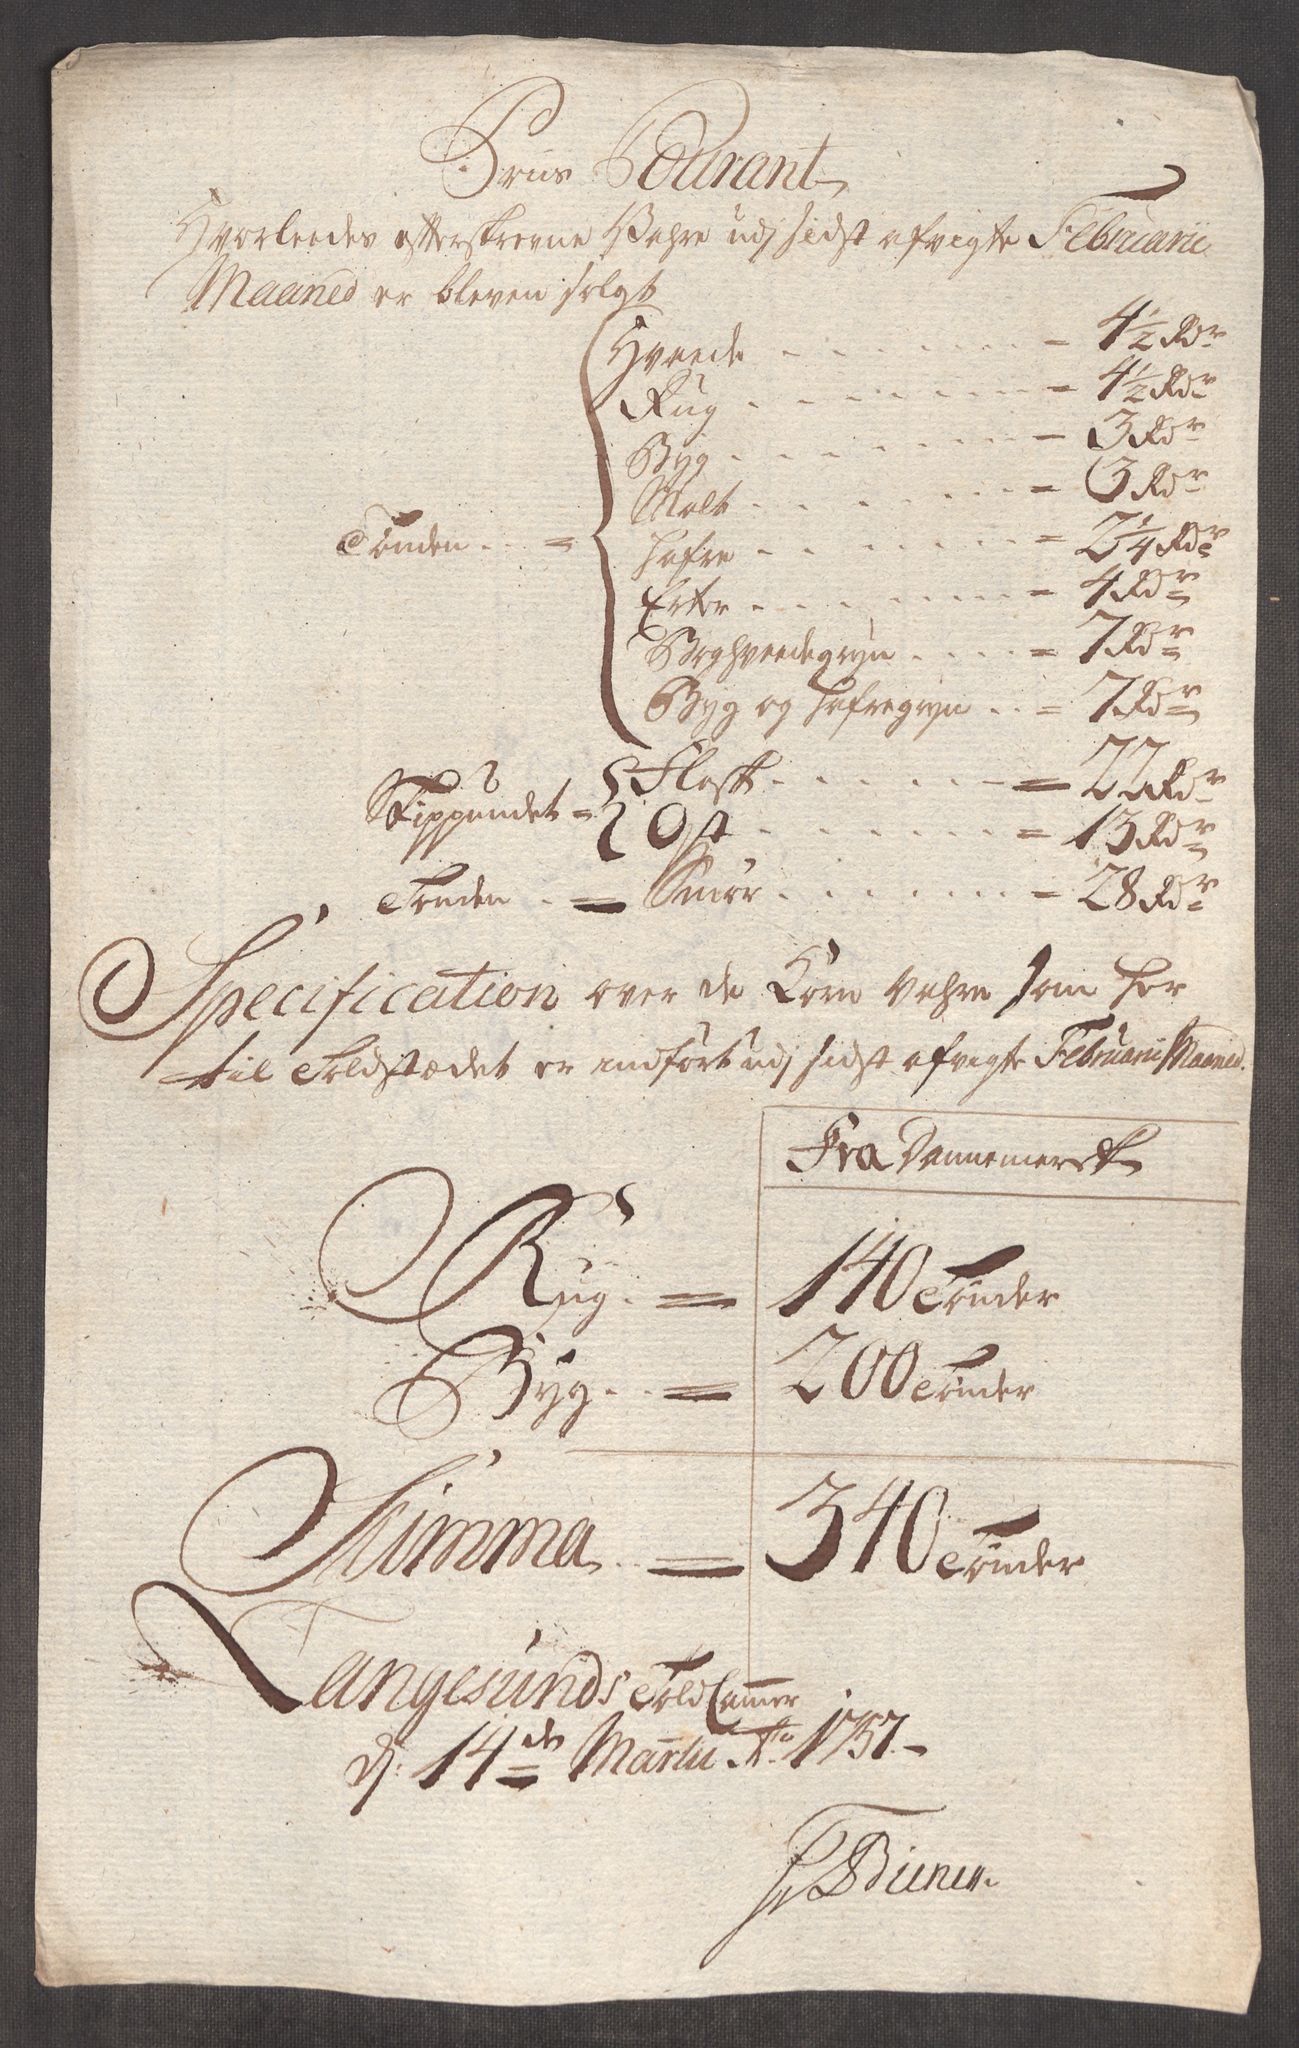 Priis Courant
Hvorleedes efterskrevne Vahre udj sidst afvigte Februarii
Maaned er bleven solgt
Hveede - 4 1/2 Rdr
Rug - 4 1/2 Rdr
Byg - 3 Rdr
Malt = 3 Rdr
Tönden = Hafre = 2 1/4 Rdr
Erter = 4 Rdr
Boghveedegryn = 7 Rdr
Byg og Hafregryn = 7 Rdr
Skippundet = Flesk = 22 Rdr
Ost = 13 Rdr
Tönden = Smör = 28 Rdr
Specification over de Korn Vahre som her
til Toldstædet er indfört udj sidst afvigte Februarii Maaned.
Fra Dannemerck
Rug = 140 Tönder
Byg = 200 Tönder
Summa = 340 Tönder
Langesunds Told Cammer
d: 14de Martii Ao 1757.